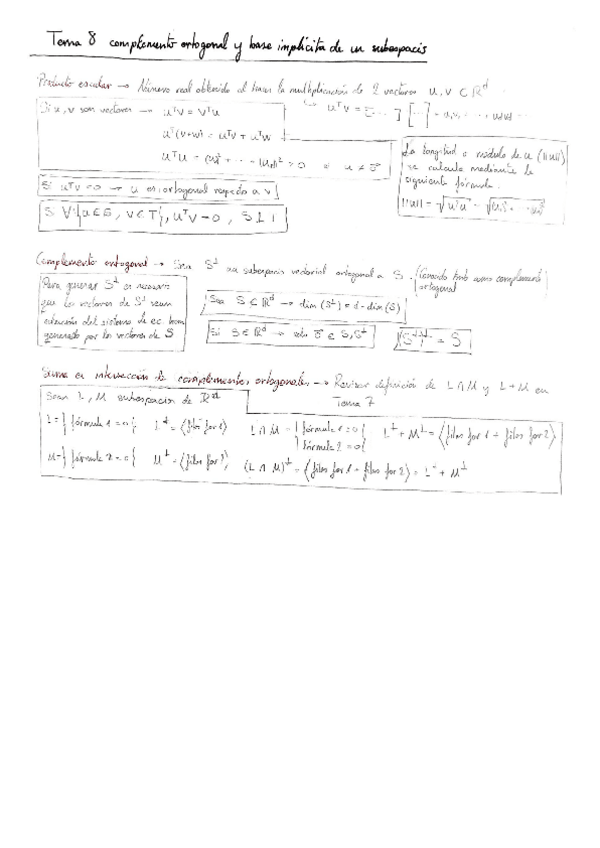 Tema 8 complemento ortogonal y base implícita de un subespacio
Producto escalar → Número real obtenido al hacer la multiplicación de 2 vectores u, v ⊂ ℝᵈ
Si u, v son vectores → uᵀv = vᵀu
uᵀ(v+w) = uᵀv + uᵀw
La longitud o módulo de u (||u||)
se calcula mediante la
siguiente fórmula.
Si uᵀv = 0 → u es ortogonal respecto a v
Complemento ortogonal → Sea S⊥ un subespacio vectorial ortogonal a S. Conocido tmb como complemento
ortogonal
Para generar S⊥ es necesario
que los vectores de S⊥ sean
solución del sistema de ec. hom.
generado por los vectores de S
Sea S ⊂ ℝᵈ → dim (S⊥) = d - dim (S)
Si S ∈ ℝᵈ → solo 0⃗ ∈ S, S⊥
(S⊥)⊥ = S
Suma e intersección de complementos ortogonales → Revisar definición de L ∩ M y L + M en
Tema 7
Sean L, M subespacios de ℝᵈ
L = { fórmula 1 = 0 { L⊥ = ⟨filas for 1⟩ L ∩ M = { fórmula 1 = 0 { L⊥ + M⊥ = ⟨filas for 1 + filas for 2⟩
fórmula 2 = 0
M = { fórmula 2 = 0 { M⊥ = ⟨filas for 2⟩ (L ∩ M)⊥ = ⟨filas for 1 + filas for 2⟩ = L⊥ + M⊥